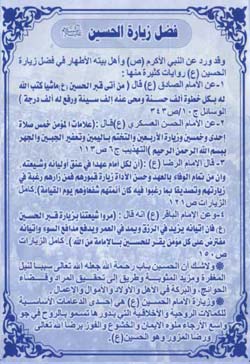 فضل زيارة الحسين
وقد ورد عن النبي الأكرم (ص) وأهل بيته الأطهار في فضل زيارة
الحسين (ع) روايات كثيرة منها:
١-عن الإمام الصادق (ع) قال (من أتى قبر الحسين (ع) ماشيا كتب الله
له بكل خطوة ألف حسنة ومحى عنه ألف سيئة ورفع له ألف درجة)
الوسائل ج١٠ص٣٤٢
٢-عن الإمام الحسن العسكري (ع) قال: (علامات المؤمن خمس صلاة
إحدى وخمسين وزيارة الأربعين والتختم باليمين وتعفير الجبين والجهر
بسم الله الرحمن الرحيم) التهذيب ج٦ ص١١٣
٣- قال الإمام الرضا (ع): (إن لكل إمام عهدا في عنق أوليائه وشيعته
وان من تمام الوفاء بالعهد وحسن الأداء زيارة قبورهم فمن زارهم رغبة في
زيارتهم وتصديقا بما رغبوا فيه كان أئمتهم شفعاؤهم يوم القيامة) كامل
الزيارات ص١٢١
٤-وعن الإمام الباقر (ع) انه قال: (مروا شيعتنا بزيارة قبر الحسين
(ع) فان اتيانه يزيد في الرزق ويمد في العمر ويدفع مدافع السوء واتيانه
مفترض على كل مؤمن يقر للحسين بالإمامة من الله) كامل الزيارات
ص١٥٠
ولاشك أن الحسين باب رحمة الله جعله الله تعالى سببا لنيل
المغفرة ومزيد المثوبة وطريق إلى تحقيق المراد وقضاء
الحوائج، والبركة في الأهل والأولاد والأموال والأعمال
وزيارة الإمام الحسين (ع) هي إحدى الدعامات الأساسية
للكمالات الروحية والأخلاقية التي بدورها تسمو بالروح في جو
واسع الأرجاء ملؤه الإيمان والخشوع والفوز برضا الله تعالى
ورضا المزور وهو الحسين (ع).